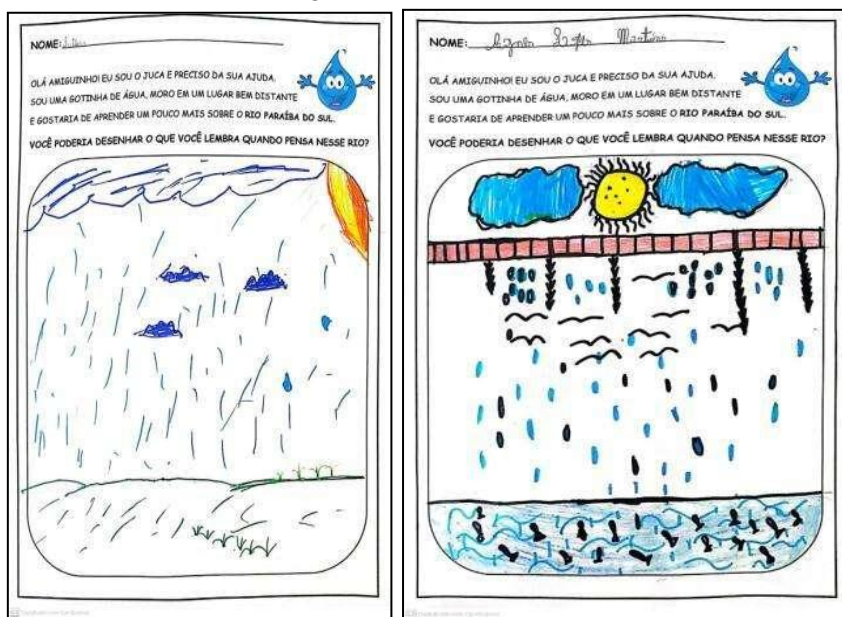 NOME:
OLÁ AMIGUINHO! EU SOU O JUCA E PRECISO DA SUA AJUDA.
SOU UMA GOTINHA DE ÁGUA, MORO EM UM LUGAR BEM DISTANTE
E GOSTARIA DE APRENDER UM POUCO MAIS SOBRE O RIO PARAÍBA DO SUL.
VOCÊ PODERIA DESENHAR O QUE VOCÊ LEMBRA QUANDO PENSA NESSE RIO?
NOME:
OLÁ AMIGUINHO! EU SOU O JUCA E PRECISO DA SUA AJUDA.
SOU UMA GOTINHA DE ÁGUA, MORO EM UM LUGAR BEM DISTANTE
E GOSTARIA DE APRENDER UM POUCO MAIS SOBRE O RIO PARAÍBA DO SUL.
VOCÊ PODERIA DESENHAR O QUE VOCÊ LEMBRA QUANDO PENSA NESSE RIO?